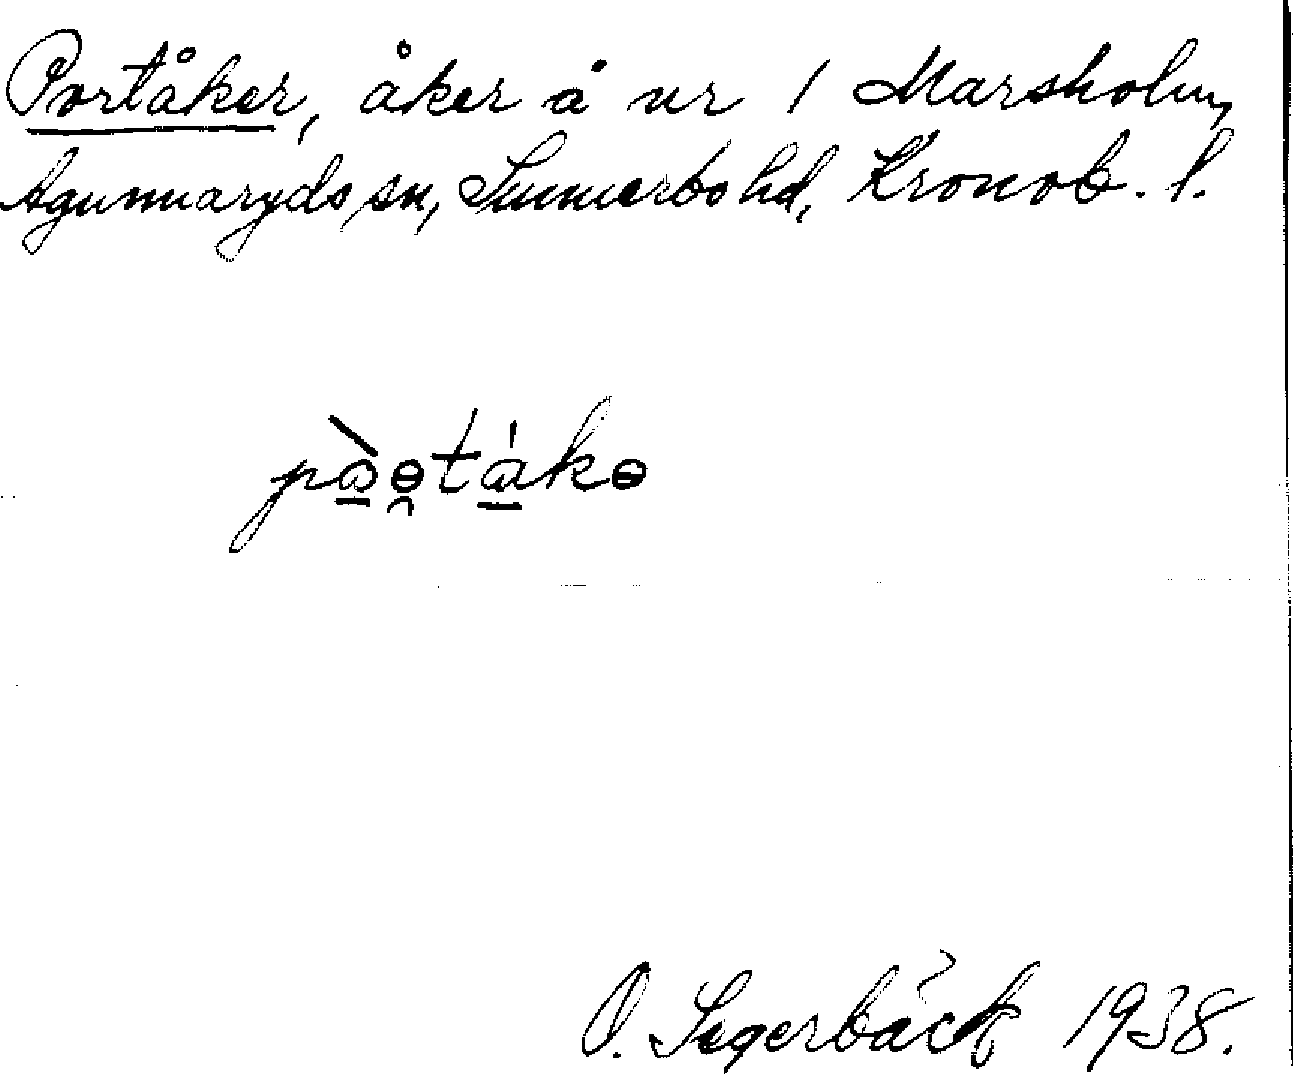 Portåker, åker å nr 1 Marsholm,
Agunnaryds sn, Sunnerbo hd, Kronob. l.
O. Segerbäck 1938.